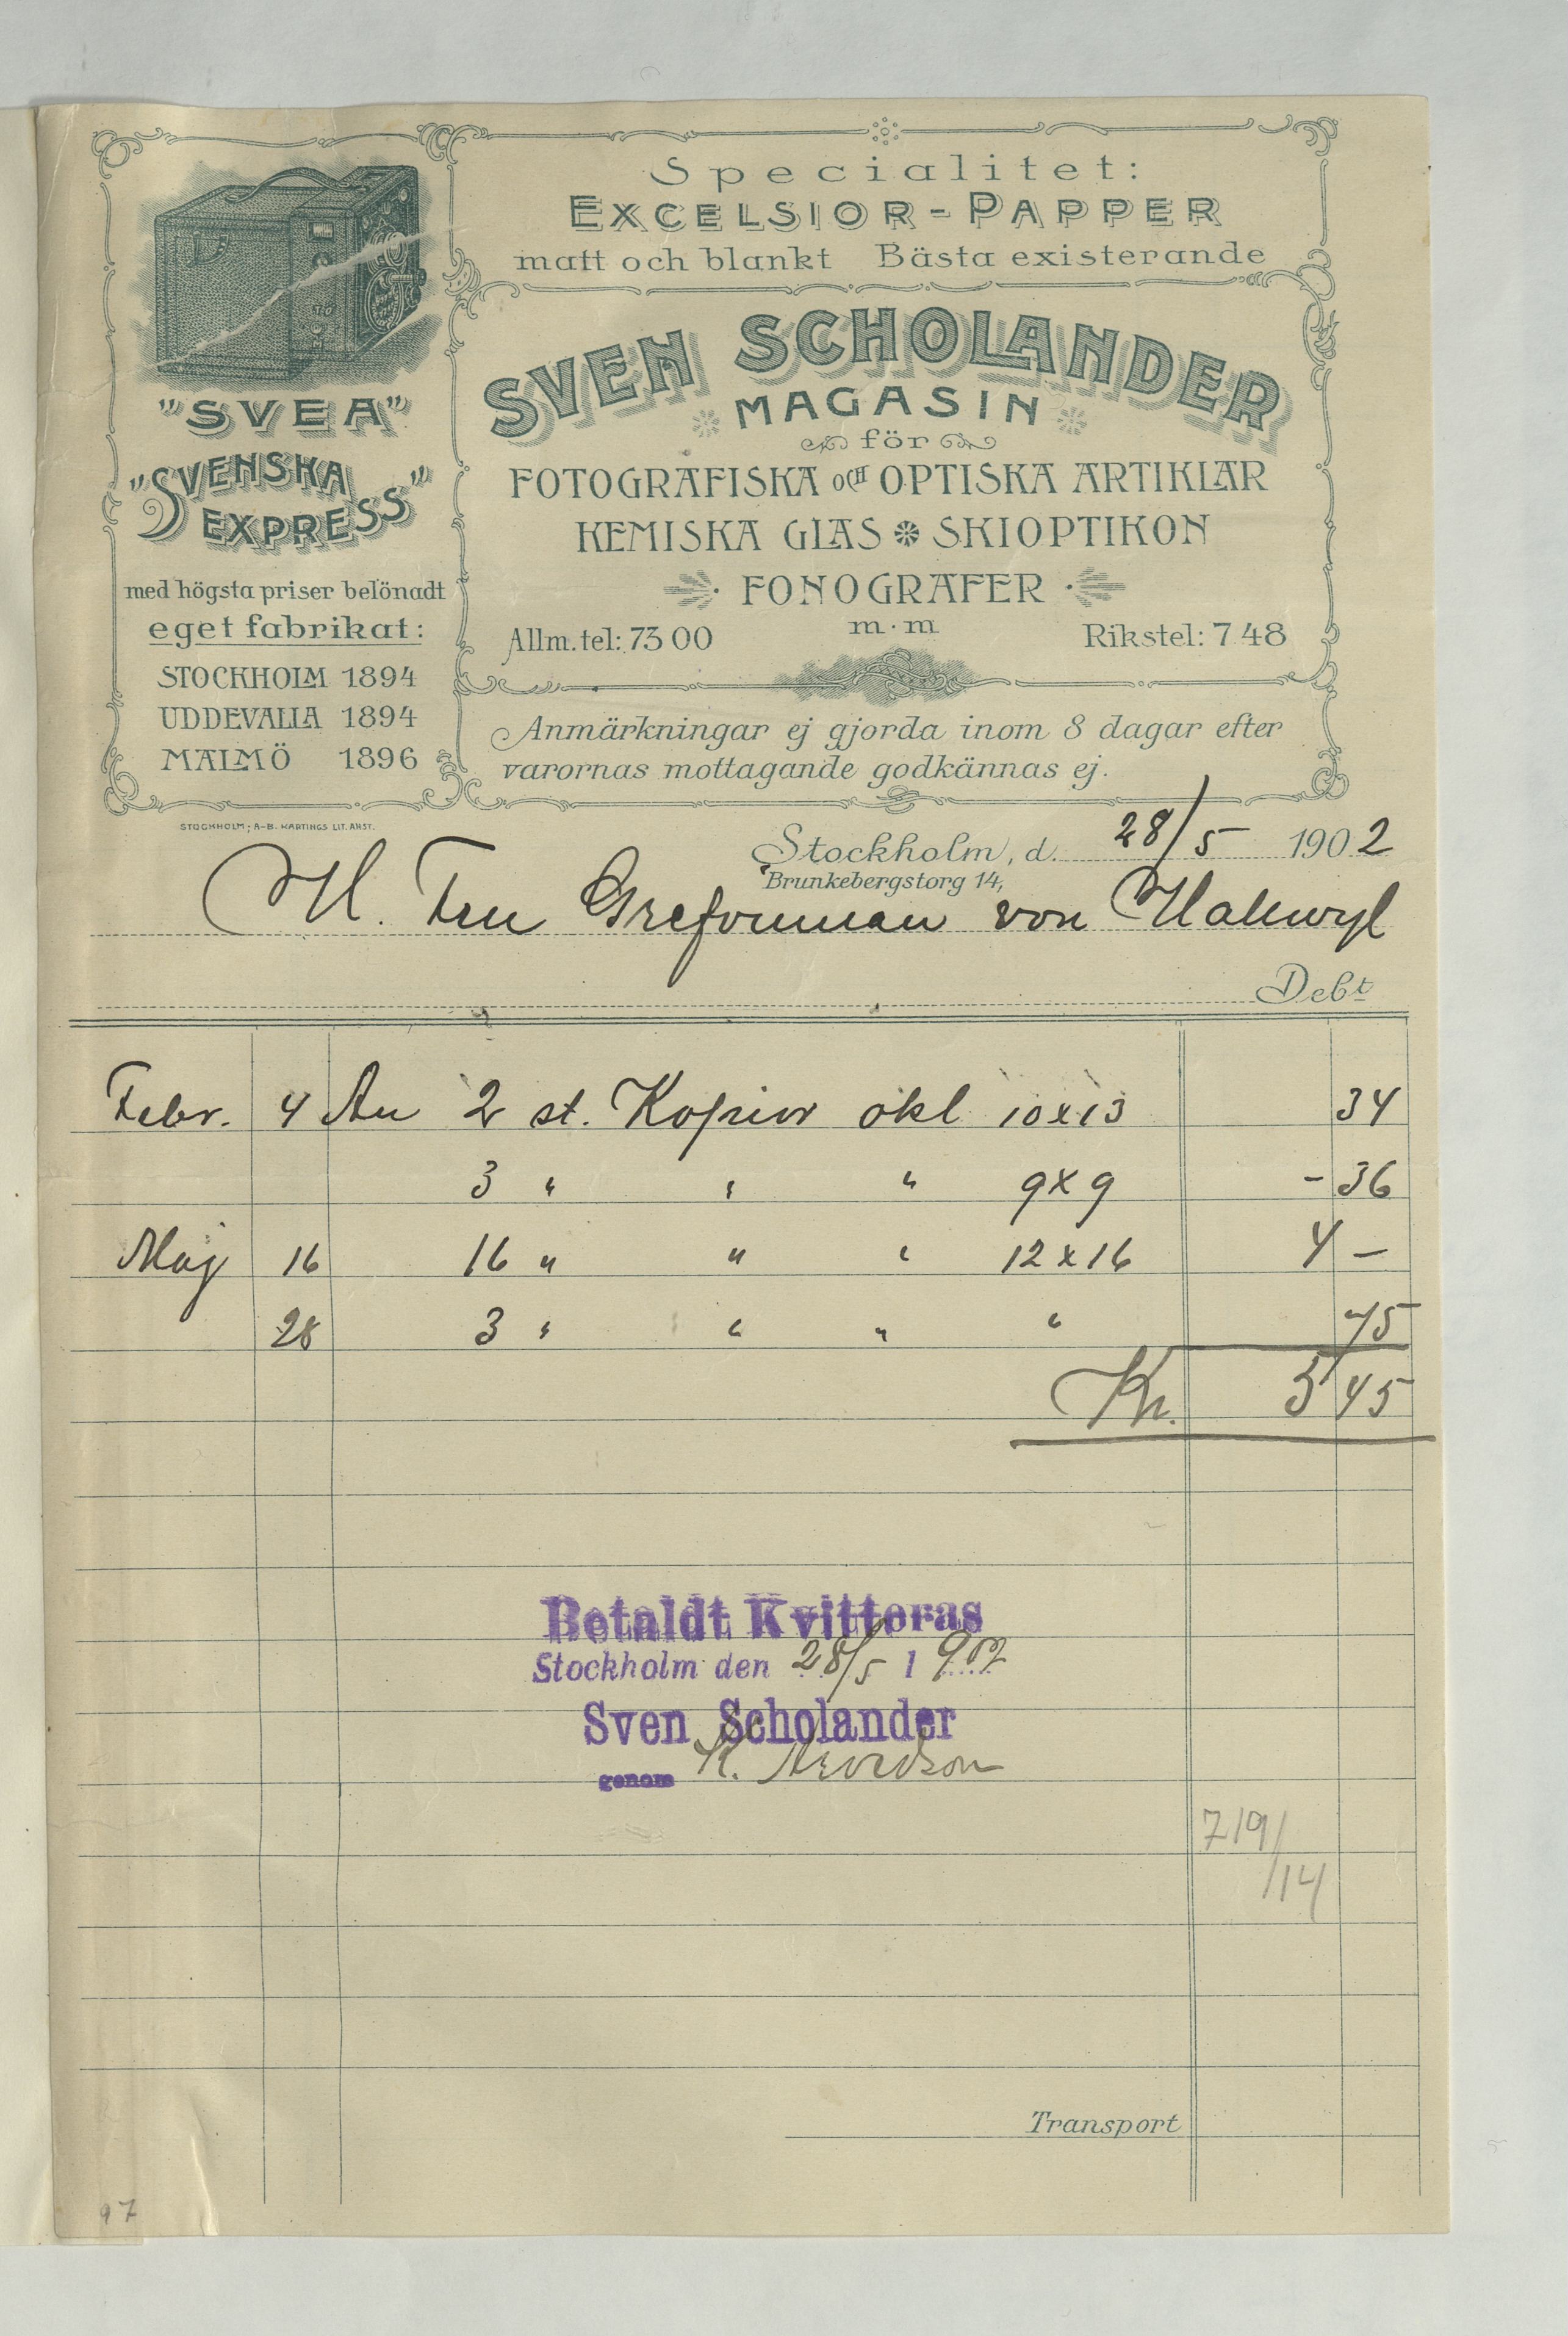 Specialitet:
EXCELSIOR-PAPPER
matt och blankt Bästa existerande
SVEN SCHOLANDER
MAGASIN
för
FOTOGRAFISKA OCH OPTISKA ARTIKLAR
KEMISKA GLAS SKIOPTIKON
FONOGRAFER
m.m
Allm. tel: 73 00
Rikstel: 7 48
Anmärkningar ej gjorda inom 8 dagar efter
varornas mottagande godkännas ej.
"SVEA"
"SVENSKA
EXPRESS"
med högsta priser belönadt
eget fabrikat:
STOCKHOLM 1894
UDDEVALLA 1894
MALMÖ 1896
STOCKHOLM; A-B. KARTINGS LIT. ANST.
Stockholm, d. 28/5 1902
Brunkebergstorg 14,
H. Fru Grefvinnan von Hallwyl
Debt
Febr. 4 An 2 st. Kopior okl 10x13 34
3 " " " 9x9 - 36
Maj 16 16 " " " 12x16 4 -
28 3 " " " " 75
Kr. 5 45
Betaldt Kvitteras
Stockholm den 28/5 1902
Sven Scholander
genom K. Arvidson
719/
/14
Transport
97